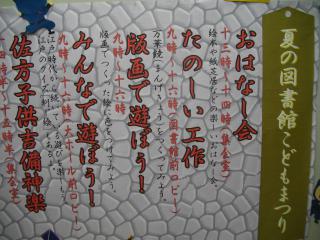 夏の図書館こどもまつり
おはなし会
十三時～十四時(集会室)
絵本や紙芝居などの楽しいおはなし会。
たのしい工作
九時～十時(図書館前ロビー)
万華鏡(まんげきょう)をつくってみよう。
版画で遊ぼう!
九時～十六時
版画でつくった絵に色をつけてみよう。
みんなで遊ぼう!
九時～十六時(大ホール前ロビー)
佐方子供吉備神楽